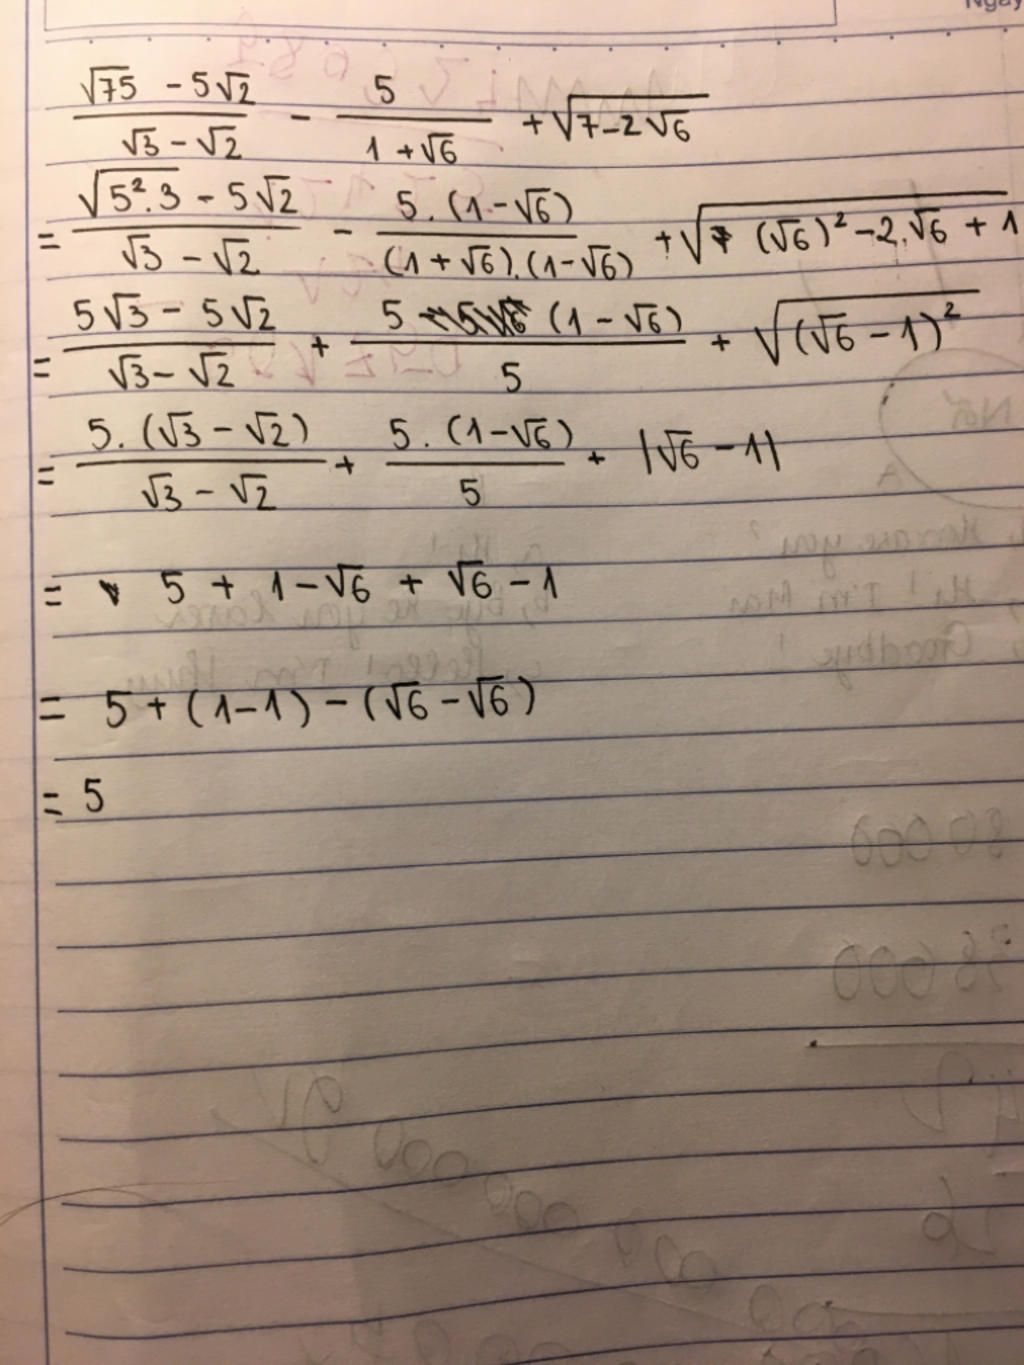 Ngày
(√75 - 5√2)/(√3 - √2) - 5/(1 + √6) + √(7 - 2√6)
= (√(5².3) - 5√2)/(√3 - √2) - 5.(1 - √6)/((1 + √6).(1 - √6)) + √((√6)² - 2.√6 + 1)
= (5√3 - 5√2)/(√3 - √2) + 5(1 - √6)/5 + √((√6 - 1)²)
= 5.(√3 - √2)/(√3 - √2) + 5.(1 - √6)/5 + |√6 - 1|
= 5 + 1 - √6 + √6 - 1
= 5 + (1 - 1) - (√6 - √6)
= 5